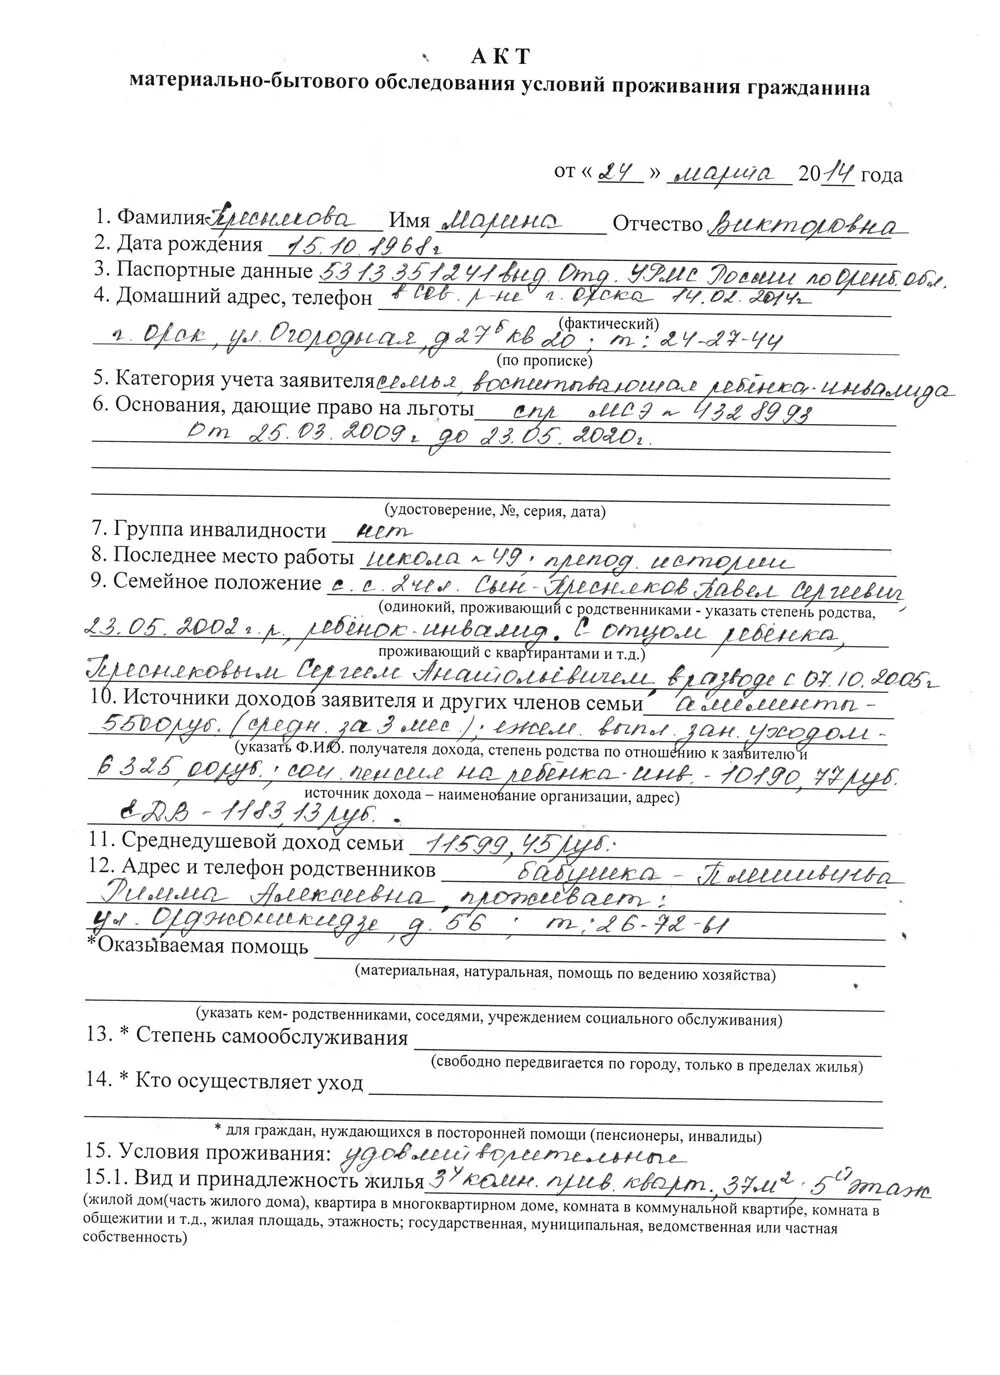 АКТ
материально-бытового обследования условий проживания гражданина
от « 24 » марта 2014 года
1. Фамилия Преснякова Имя Марина Отчество Викторовна
2. Дата рождения 15.10.1968г
3. Паспортные данные 5313 351241 выд. Отд. УФМС России по Оренб. обл.
4. Домашний адрес, телефон в Сов. р-не г. Орска 14.02.2014г
(фактический)
г. Орск, ул. Огородная, д 27б кв 20; т: 24-27-44
(по прописке)
5. Категория учета заявителя семья, воспитывающая ребёнка-инвалида
6. Основания, дающие право на льготы спр МСЭ ~ 4328993
от 25.03.2009г до 23.05.2020г.
(удостоверение, №, серия, дата)
7. Группа инвалидности нет
8. Последнее место работы школа ~ 49. препод. истории
9. Семейное положение с.с. 2 чел. Сын-Пресняков Павел Сергеевич
(одинокий, проживающий с родственниками - указать степень родства,
23.05.2002г.р., ребёнок-инвалид. С отцом ребёнка,
проживающий с квартирантами и т.д.)
Пресняковым Сергеем Анатольевичем в разводе с 07.10.2005г
10. Источники доходов заявителя и других членов семьи алименты -
5500руб. (средн. за 3 мес.); ежем. выпл. зан. уходом -
(указать Ф.И.О. получателя дохода, степень родства по отношению к заявителю и
6325,00руб.; соц. пенсия на ребёнка-инв. - 10190,77руб.
источник дохода – наименование организации, адрес)
ЕДВ - 1183,13руб.
11. Среднедушевой доход семьи 11599,45руб.
12. Адрес и телефон родственников бабушка -
Римма Алексеевна, проживает:
ул. Орджоникидзе, д. 56 ; т: 26-72-61
*Оказываемая помощь
(материальная, натуральная, помощь по ведению хозяйства)
(указать кем- родственниками, соседями, учреждением социального обслуживания)
13. * Степень самообслуживания
(свободно передвигается по городу, только в пределах жилья)
14. * Кто осуществляет уход
* для граждан, нуждающихся в посторонней помощи (пенсионеры, инвалиды)
15. Условия проживания: удовлетворительные
15.1. Вид и принадлежность жилья 3х комн. прив. кварт., 37м2. 5й этаж
(жилой дом(часть жилого дома), квартира в многоквартирном доме, комната в коммунальной квартире, комната в
общежитии и т.д., жилая площадь, этажность; государственная, муниципальная, ведомственная или частная
собственность)